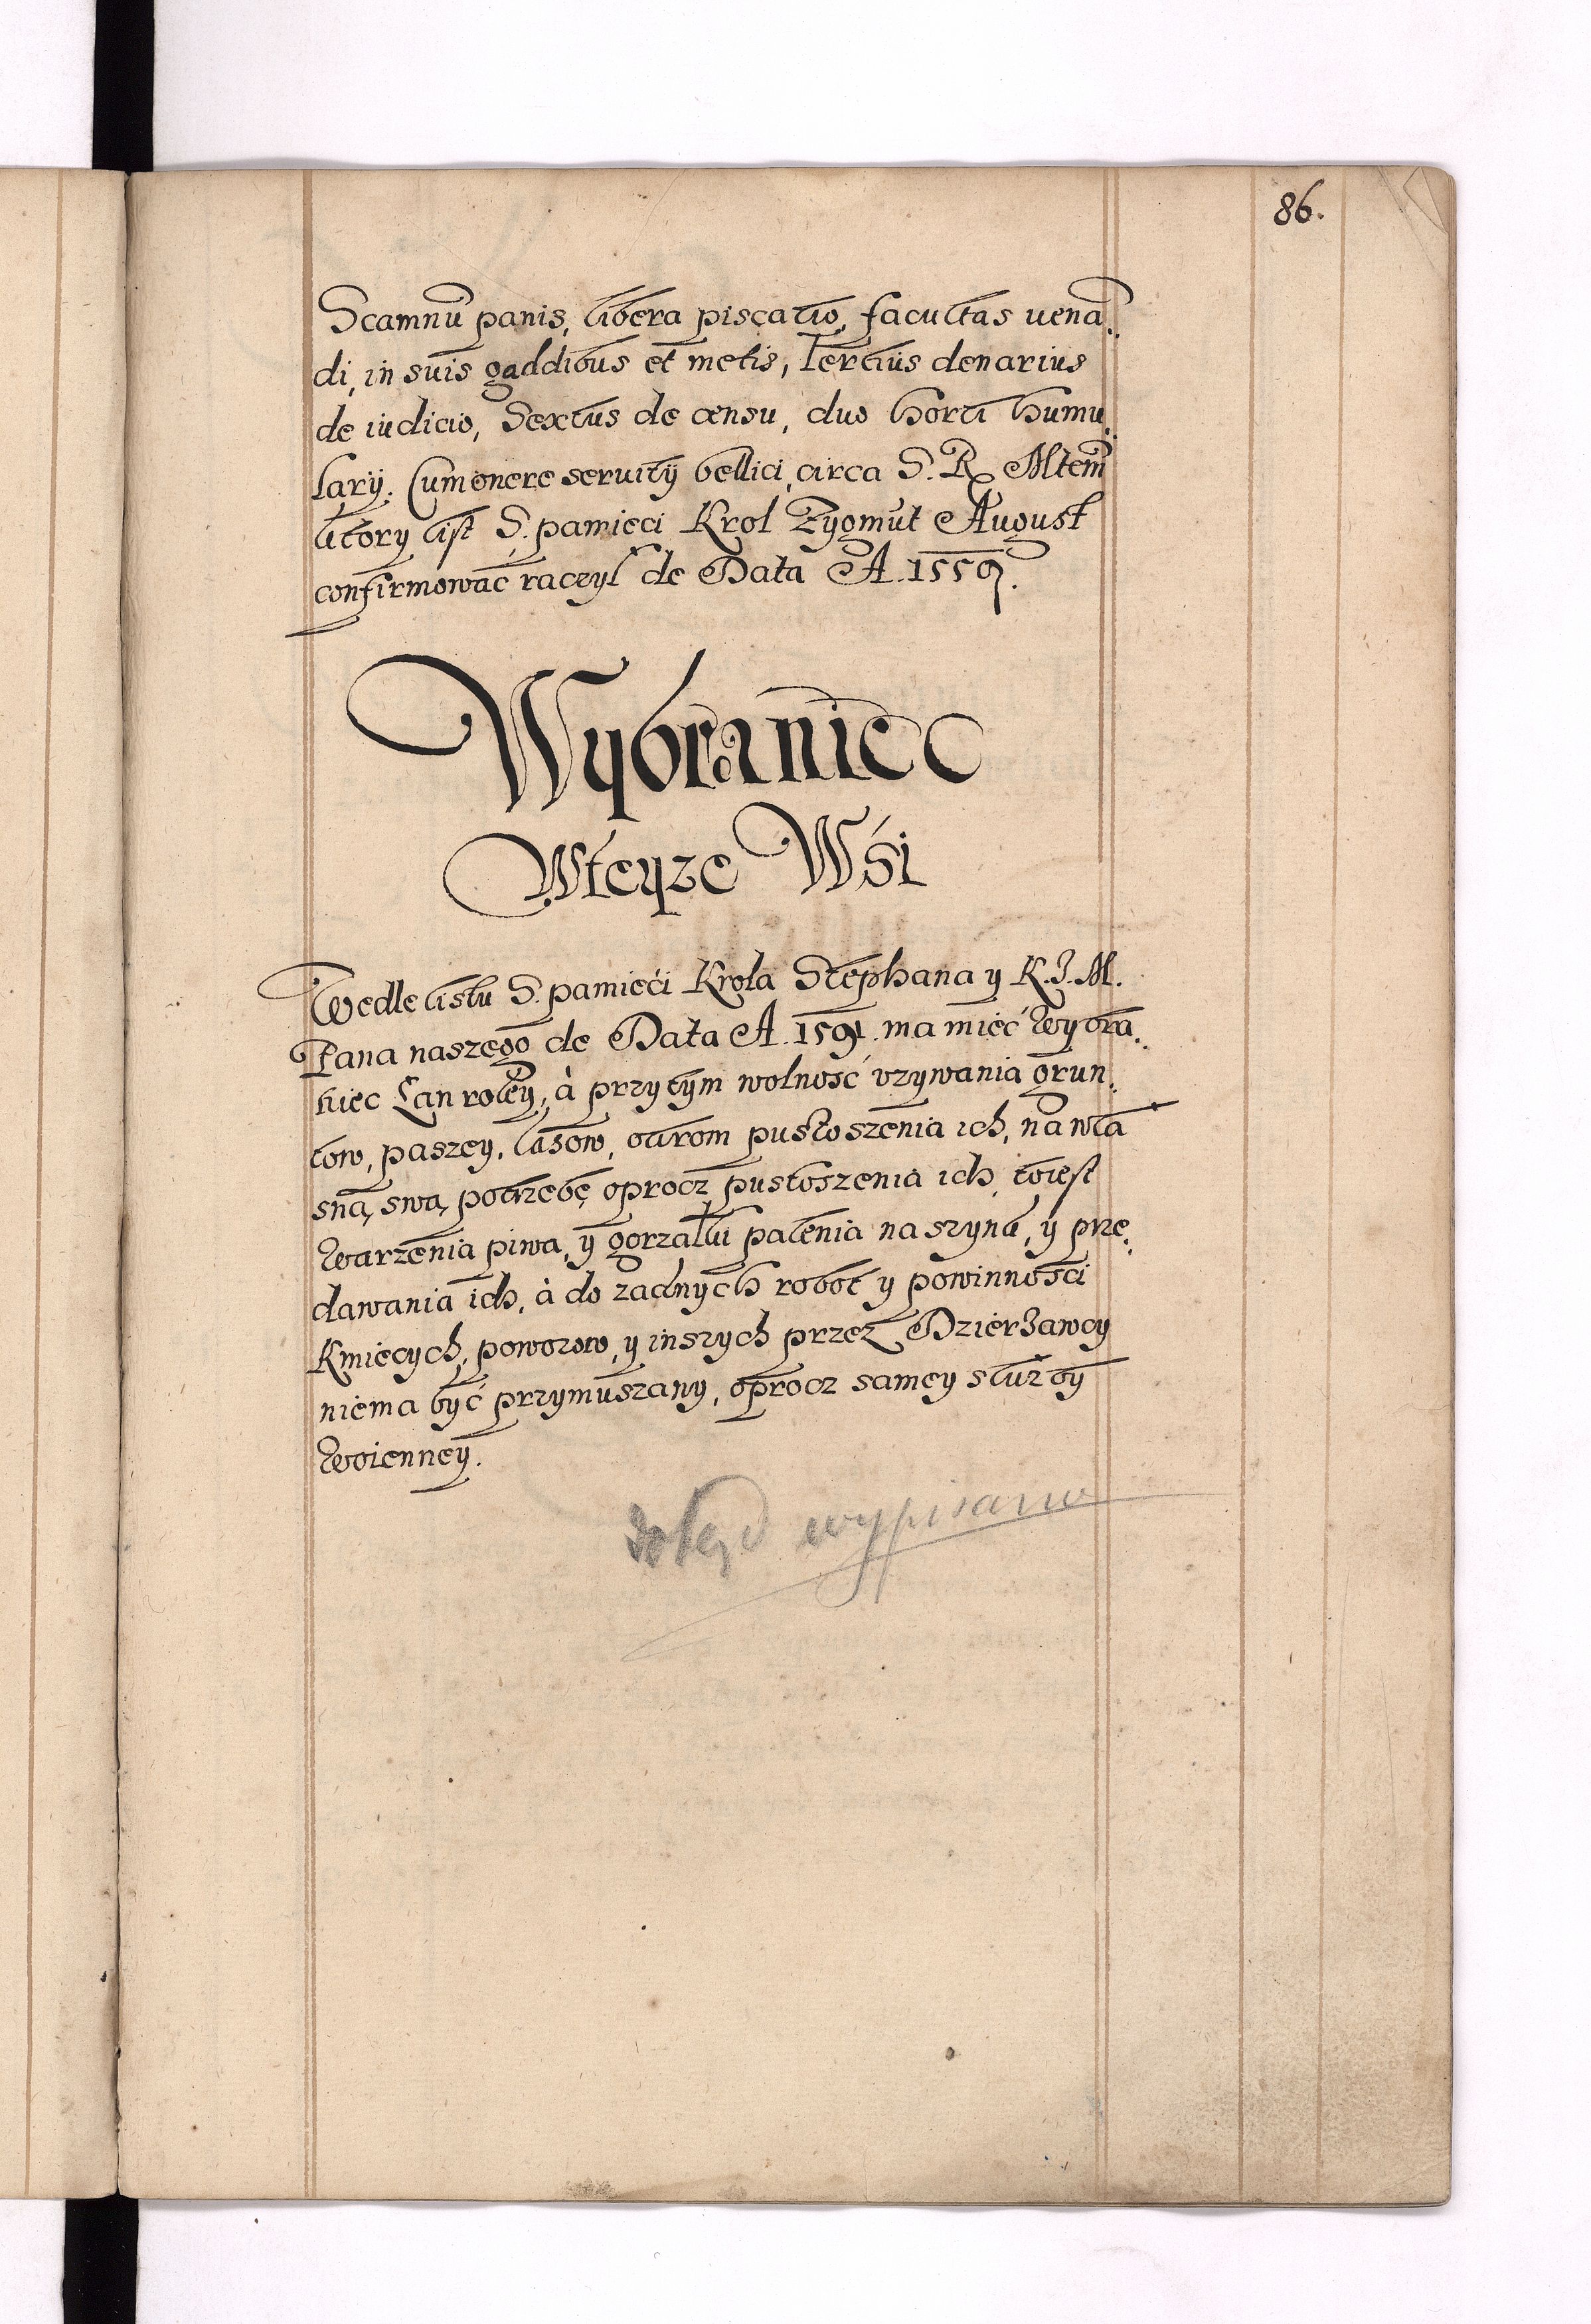 86.
Scamnū panis, libera piscatio, facultas venā-
di, in suis gaddibus et metis, Tertius denarius
de iudicio, Sextus de censu, duo horti humu-
lary. Cum onere servitÿ bellici, circa S. R. Mtem
ktory list S. pamieci Krol Zygmūt August
confirmować raczył de Data A. 1559.
Wybraniec
Wteyze Wśi
Wedle listu S. pamieći Krola Stephana y K. J. M.
Pana naszego de Data A. 1591. ma mieć Wybra-
niec Łan roley, à przytym wolność vzywania grun-
tow, paszey, lasow, okrom pustoszenia ich, na wła
sną swą potrzebę oprocz pustoszenia ich, toiest
Warzenia piwa, y gorzałki palenia na szynk, y prze-
dawania ich, à do zadnych robot y powinności
Kmiecych, powozow, y inszych przez Dzierzawcy
niema być przymuszany, oprocz samey słuzby
Woienney.
dotąd wypisano